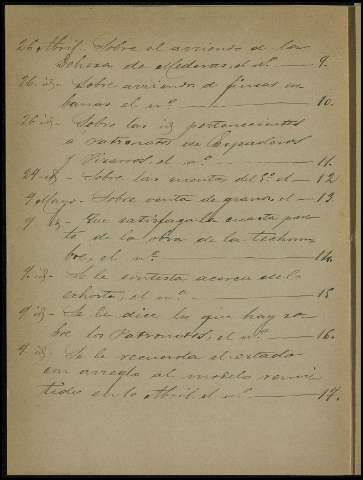 26 Abril. Sobre el arriendo de la
Dehesa de Mederos, el nº. — 9.
26. id - Sobre arriendo de fincas ur
banas el nº. — 10.
26. id - Sobre las id pertenecientes
a patronatos de
y Pizarros, el nº. — 11.
24. id - Sobre las cuentas del el — 12
9 Mayo. Sobre venta de granos, el — 13
9. id - Que satisfaga la cuarta par
te de la obra de la techum
bre, el nº. — 14.
9. id - Se le contesta acerca de la
el nº. — 15
9. id - Se le dice lo que hay so-
bre los Patronatos, el nº. — 16.
9. id - Se le recuerda el estado
con arreglo al modelo remi
tido en 10 Abril el nº. — 17.